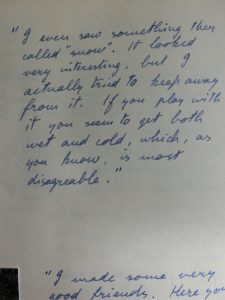 "I even saw something they
called "snow". It looked
very interesting, but I
actually tried to keep away
from it. If you play with
it you seem to get both
wet and cold, which, as
you know, is most
disagreable."
"I made some very
good friends. Here you